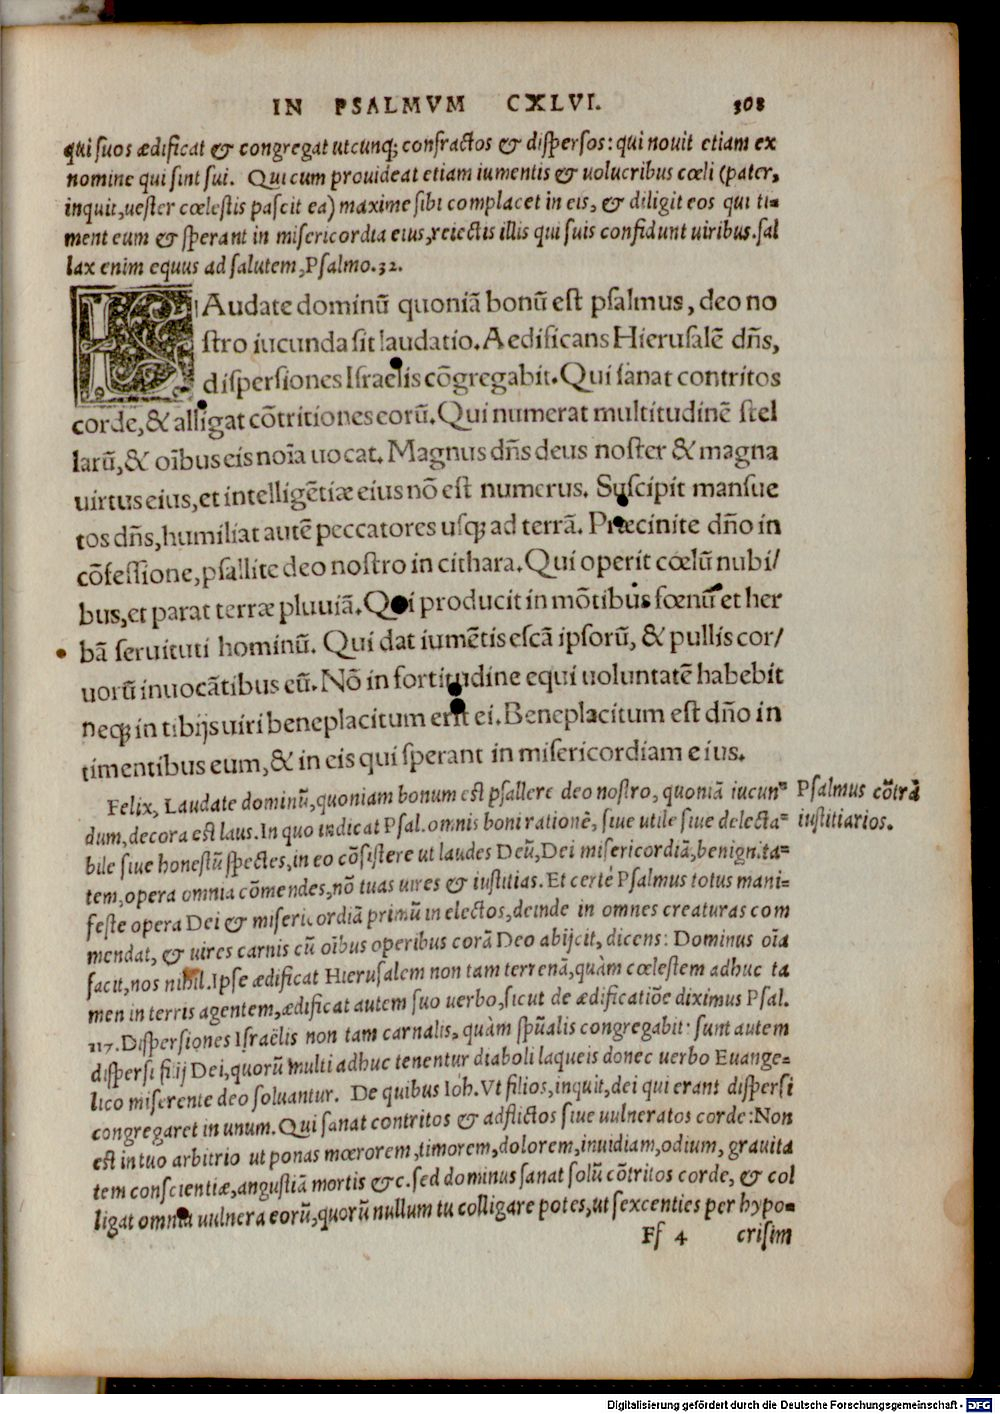 IN PSALMVM CXLVI. 308
qui suos ædificat & congregat utcunq; confractos & dispersos: qui novit etiam ex
nomine qui sint sui. Qui cum provideat etiam iumentis & uolucribus cœli (pater,
inquit, uester cœlestis pascit ea) maxime sibi complacet in eis, & diligit eos qui ti=
ment eum & sperant in misericordia eius, reiectis illis qui suis confidunt uiribus. fal
lax enim equus ad salutem, Psalmo. 32.
LAudate dominũ quoniã bonũ est psalmus, deo no
stro iucunda sit laudatio. Aedificans Hierusalẽ dñs,
dispersiones Israelis cõgregabit. Qui sanat contritos
corde, & alligat cõtritiones eorũ. Qui numerat multitudinẽ stel
larũ, & oĩbus eis noĩa uocat. Magnus dñs deus noster & magna
uirtus eius, et intelligẽtiæ eius nõ est numerus. Suscipit mansue
tos dñs, humiliat autẽ peccatores usq; ad terrã. Præcinite dño in
cõfessione, psallite deo nostro in cithara. Qui operit cœlũ nubi/
bus, et parat terræ pluuiã. Qui producit in mõtibus fœnũ et her
bã seruituti hominũ. Qui dat iumẽtis escã ipsorũ, & pullis cor/
uorũ inuocãtibus eũ. Nõ in fortitudine equi uoluntatẽ habebit
neq; in tibijs uiri beneplacitum erit ei. Beneplacitum est dño in
timentibus eum, & in eis qui sperant in misericordiam eius.
Felix, Laudate dominũ, quoniam bonum est psallere deo nostro, quoniã iucun=
dum, decora est laus. In quo indicat Psal. omnis boni rationẽ, siue utile siue delecta=
bile siue honestũ spectes, in eo cõsistere ut laudes Deũ, Dei misericordiã, benignita=
tem, opera omnia cõmendes, nõ tuas uires & iustitias. Et certé Psalmus totus mani=
feste opera Dei & misericordiã primũ in electos, deinde in omnes creaturas com
mendat, & uires carnis cũ oĩbus operibus corã Deo abijcit, dicens: Dominus oĩa
facit, nos nihil. Ipse ædificat Hierusalem non tam terrenã, quàm cœlestem adhuc ta
men in terris agentem, ædificat autem suo uerbo, sicut de ædificatiõe diximus Psal.
117. Dispersiones Israëlis non tam carnalis, quàm spũalis congregabit: sunt autem
dispersi filij Dei, quorũ multi adhuc tenentur diaboli laqueis donec uerbo Euange=
lico miserente deo soluantur. De quibus Ioh. Vt filios, inquit, dei qui erant dispersi
congregaret in unum. Qui sanat contritos & adflictos siue uulneratos corde: Non
est in tuo arbitrio ut ponas mœrorem, timorem, dolorem, inuidiam, odium, grauita
tem conscientiæ, angustiã mortis &c. sed dominus sanat solũ cõtritos corde, & col
ligat omnia uulnera eorũ, quorũ nullum tu colligare potes, ut sexcenties per hypo=
Ff 4 crisim
Psalmus cõtrã
iustitiarios.
Digitalisierung gefördert durch die Deutsche Forschungsgemeinschaft - DFG